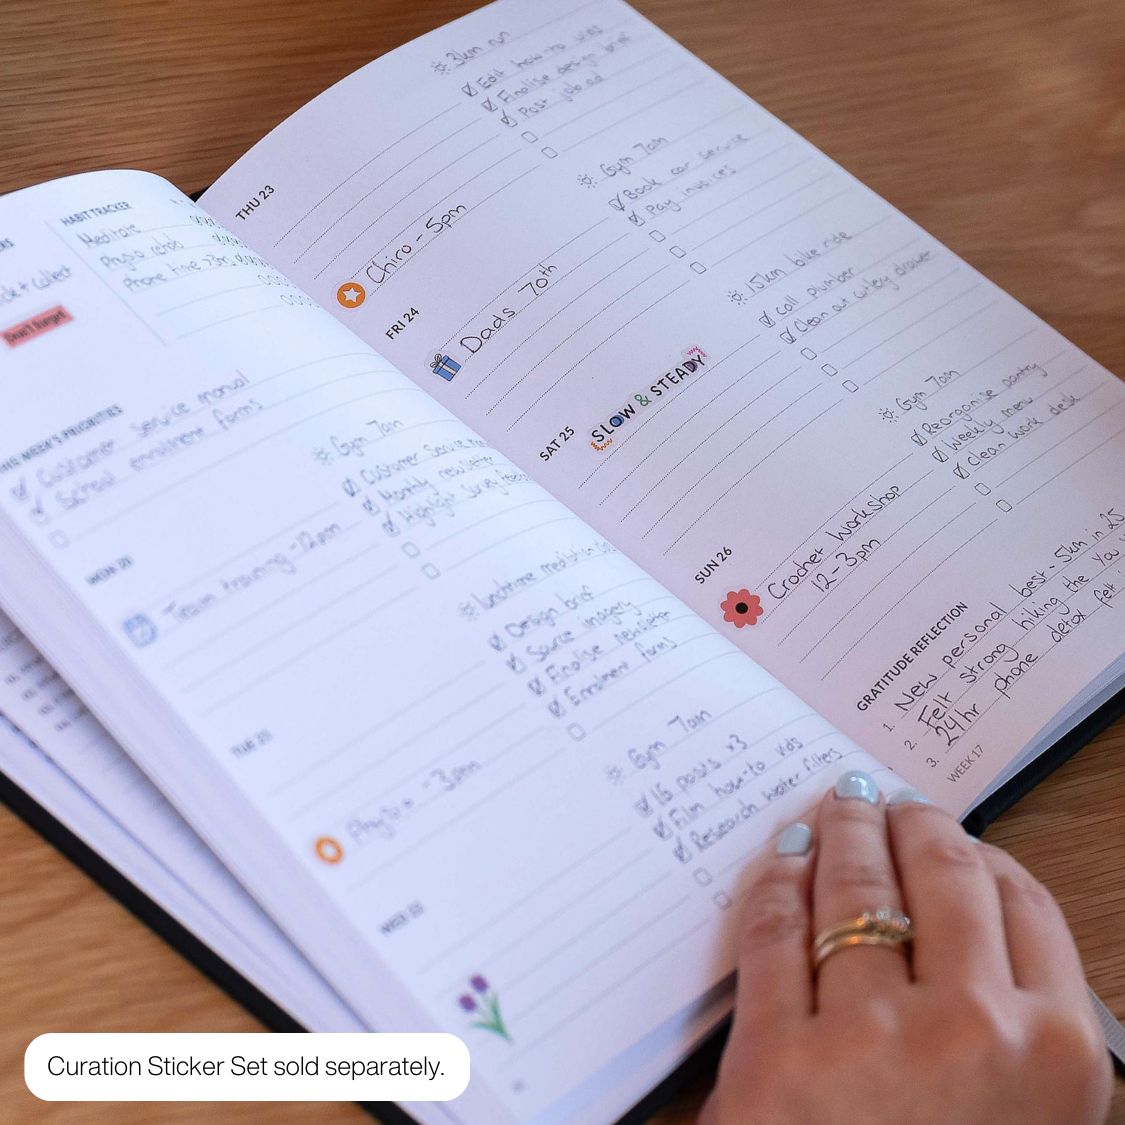 HABIT TRACKER
Meditate
Physio rehab
Phone time <3hrs
+ collect
Don't forget!
THIS WEEK'S PRIORITIES
Customer service manual
School enrolment forms
MON 20
Gym 7am
Customer Service
Monthly newsletter
Highlight survey
Team training - 12pm
TUE 21
lunchtime meditation
Design brief
Source imagery
Finalise newsletter
Enrolment forms
Physio - 3pm
WED 22
Gym 7am
16 posts x3
Film how-to vids
Research water filters
THU 23
3km run
Edit how-to vids
Finalise design brief
Post job ad
Chiro - 5pm
FRI 24
Gym 7am
Book car service
Pay invoices
Dads 70th
SAT 25
15km bike ride
Call plumber
Clean out cutlery drawer
SLOW & STEADY
SUN 26
Gym 7am
Reorganise pantry
Weekly menu
Clean work desk
Crochet Workshop
12-3pm
GRATITUDE REFLECTION
1. New personal best - 5km in 25
2. Felt strong hiking the You
3. 24hr phone detox felt
WEEK 17
Curation Sticker Set sold separately.